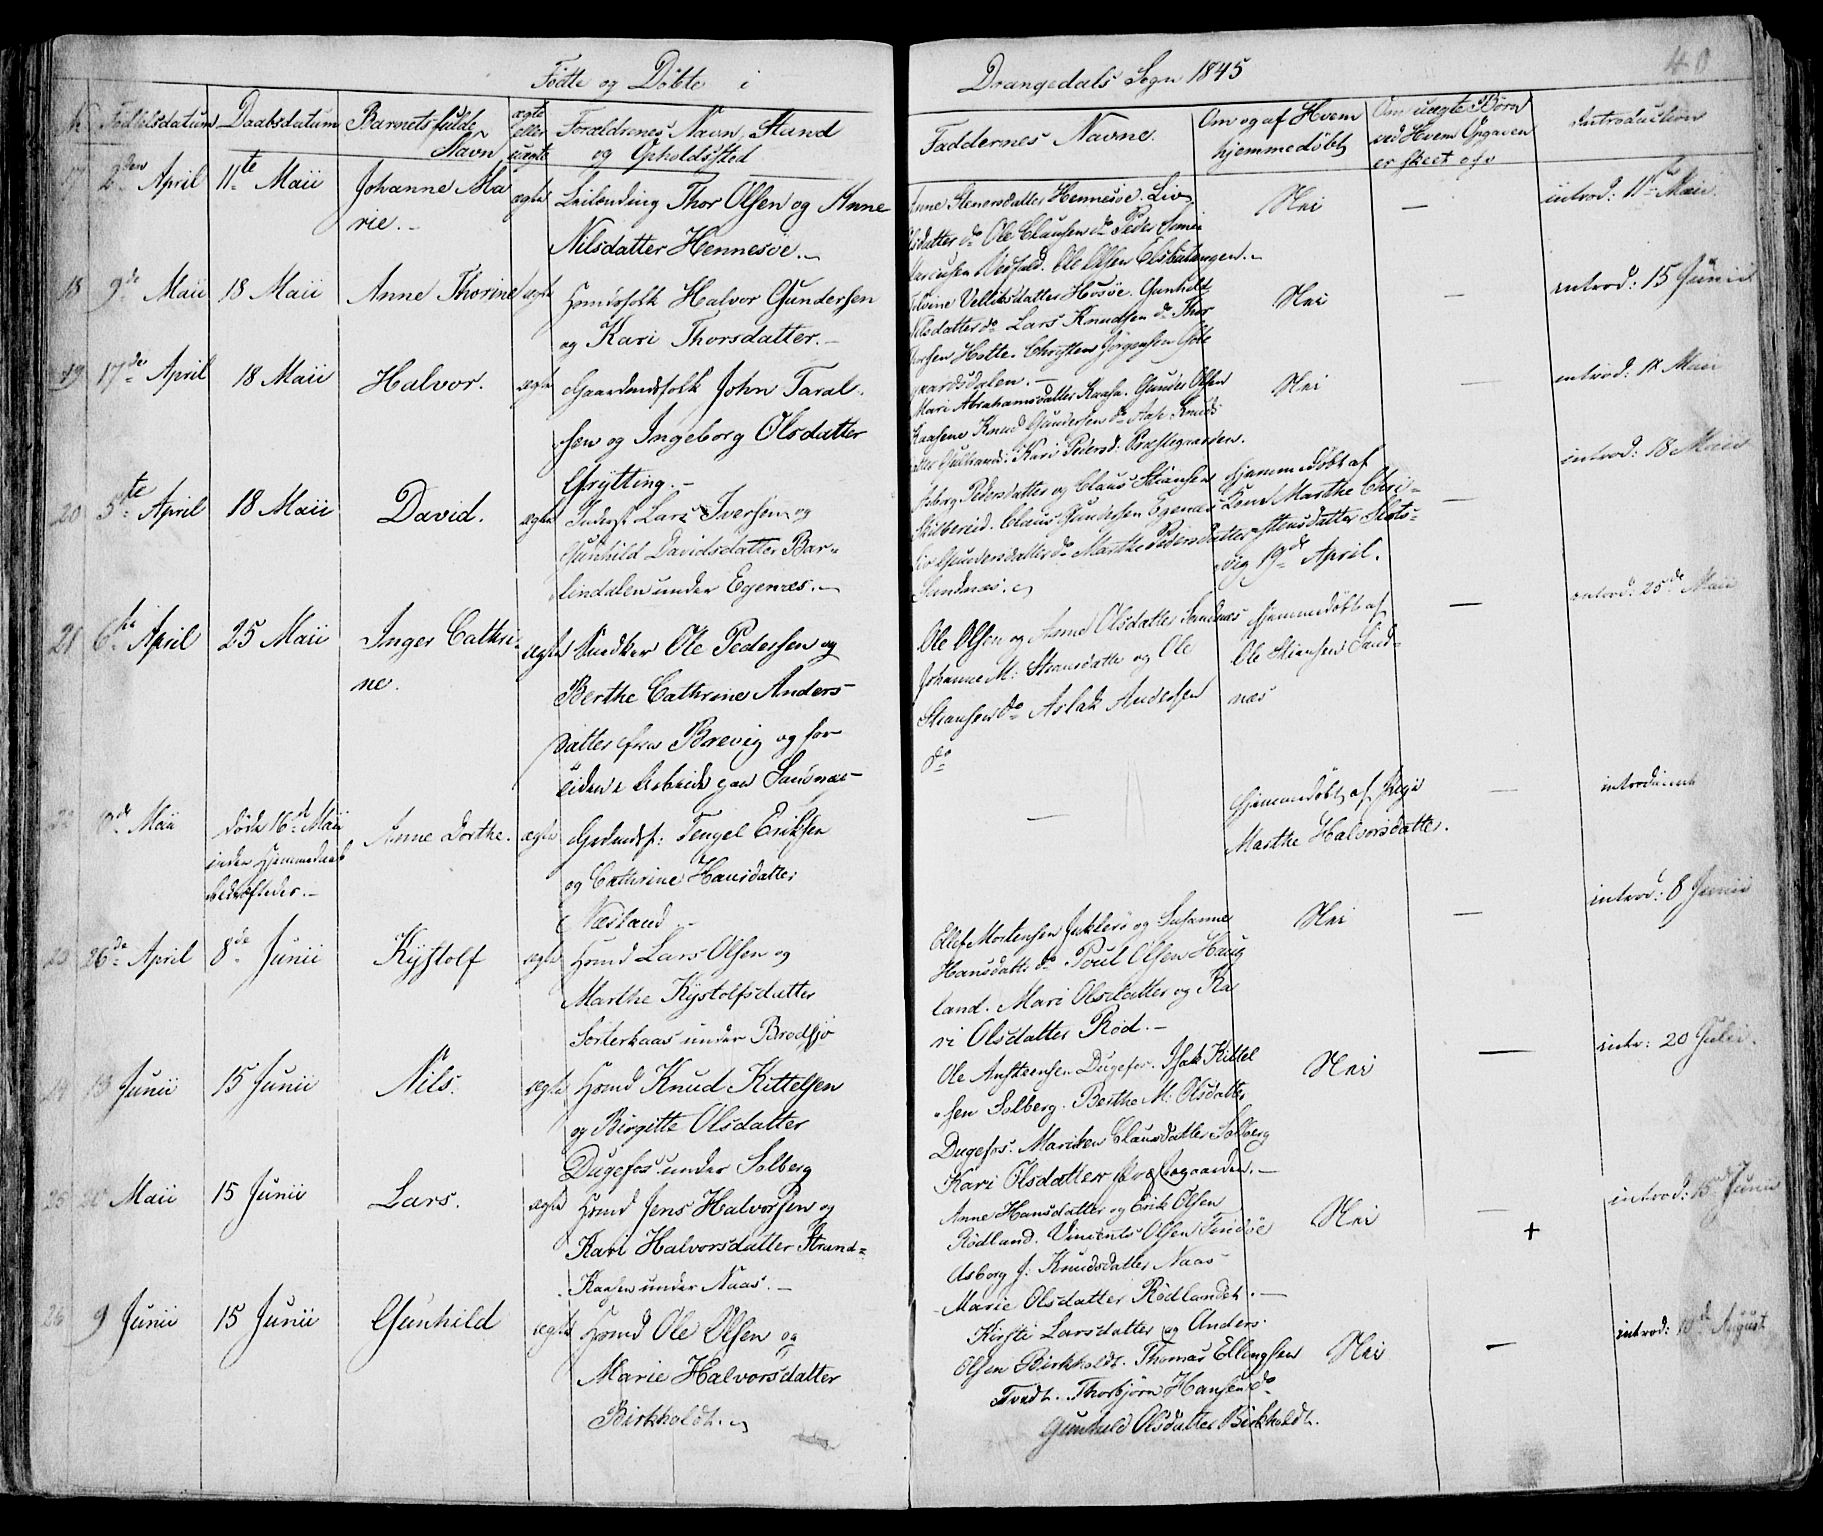 Födte og Döbte i
Drangedals Sogn 1845
40
No Födselsdatum Daabsdatum Barnets fulde Navn ægte eller uægte Forældrenes Navn, Stand og Opholdssted
Faddernes Navne. Om og af Hvem hjemmedöbt Om uægte Börn ved Hvem Opgaven er skeet ofv Introduction
17 2den April 11te Maii Johanne Ma
rie. ægte Leilænding Thor Olsen og Anne
Nilsdatter Hennesöe.
Anne Stenersdatter Hennesöe. Liv
Olsdatter do Ole Clausen do Peder
Ole Olsen
Nei — introd: 11te Maii
18 9de Maii 18 Maii Anne Thorine ægte Huusfolk Halvor Gundersen
og Kari Thorsdatter.
Gunhild
Nilsdatter do Lars Knudsen do Thor
Christen Jörgensen
Nei — introd: 15 Junii
19 17de April 18 Maii Halvor. ægte Gaardmdsfolk John Taral
sen og Ingeborg Olsdatter
Frytting.
Mari Abrahamsdatter Kaasa. Gunder Olsen
Kaasene Knud Gundersen do
Kari Pedersd: Præstegaarden.
Nei — introd: 12 Maii
20 5te April 18 Maii David. ægte Inderst Lars Iversen og
Gunhild Davidsdatter Bar-
lindalen under Egenæs.
Pedersdatter og Claus Stiansen
Claus Gundersen Egenæs
Liv Gundersdatter do Marthe Pedersdatter
Sandnæs.
Hjemmedöbt af
Kone Marthe Chri-
stensdatter Slots-
vig 19de April.
— introd: 18 Maii
21 6te April 25 Maii Inger Cathri-
ne. ægte Snedker Ole Pedersen og
Berthe Cathrine Anders-
datter fra Brevig og for
tiden i Arbeide paa Sandnæs
Ole Olsen og Anne Olsdatter Sandnæs
Johanne M: Stiansdatter og Ole
Stiansen do Aslak Andersen
do
Hjemmedöbt af
Ole Stiansen Sand-
næs
— introd: 25de Maii
22 8de Maii döde 16de Maii
inden Hjemmedaab
bekræftedes. Anne Dorthe. ægte Grdmdsf: Tengel Eriksen
og Cathrine Hansdatter
Næsland
— Hjemmedöbt af Pige
Marthe Halvorsdatter.
— introduceret
23 26de April 8de Junii Kystolf ægte Hmd Lars Olsen og
Marthe Kystolfsdatter
Sorterkaas under Brödsjö
Ellef Mortensen Jukleröe og Susanne
Hansdatter do Poul Olsen Haug
land. Mari Olsdatter og Ka
ri Olsdatter Röd.
Nei — introd: 8 Junii
24 13 Junii 15 Junii Nils. ægte Hmd Knud Kittelsen
og Birgitte Olsdatter
Dugefos under Solberg
Ole Anstensen Dugefos. Isak Kittel
sen Solberg. Berthe M: Olsdatter
Dugefos. Mariken Clausdatter Solberg
Kari Olsdatter Præstegaarden.
Nei — intr: 20 Julii.
25 Maii 15 Junii Lars. ægte Hmd Jens Halvorsen og
Kari Halvorsdatter Strand-
Kaasen under Naas.
Anne Hansdatter og Erik Olsen
Rödland. Vincents Olsen
Asborg J: Knudsdatter Naas
Marie Olsdatter Rödlandet.
Nei — + introd: 15de Junii
26 9 Junii 15 Junii Gunhild ægte Hmd Ole Olsen og
Marie Halvorsdatter
Birkholdt.
Kirsti Larsdatter og Anders
Olsen Birkholdt. Thomas Ellingsen
Tvedt. Thorbjörn Hansen do
Gunhild Olsdatter Birkholdt.
Nei — introd: 10de August